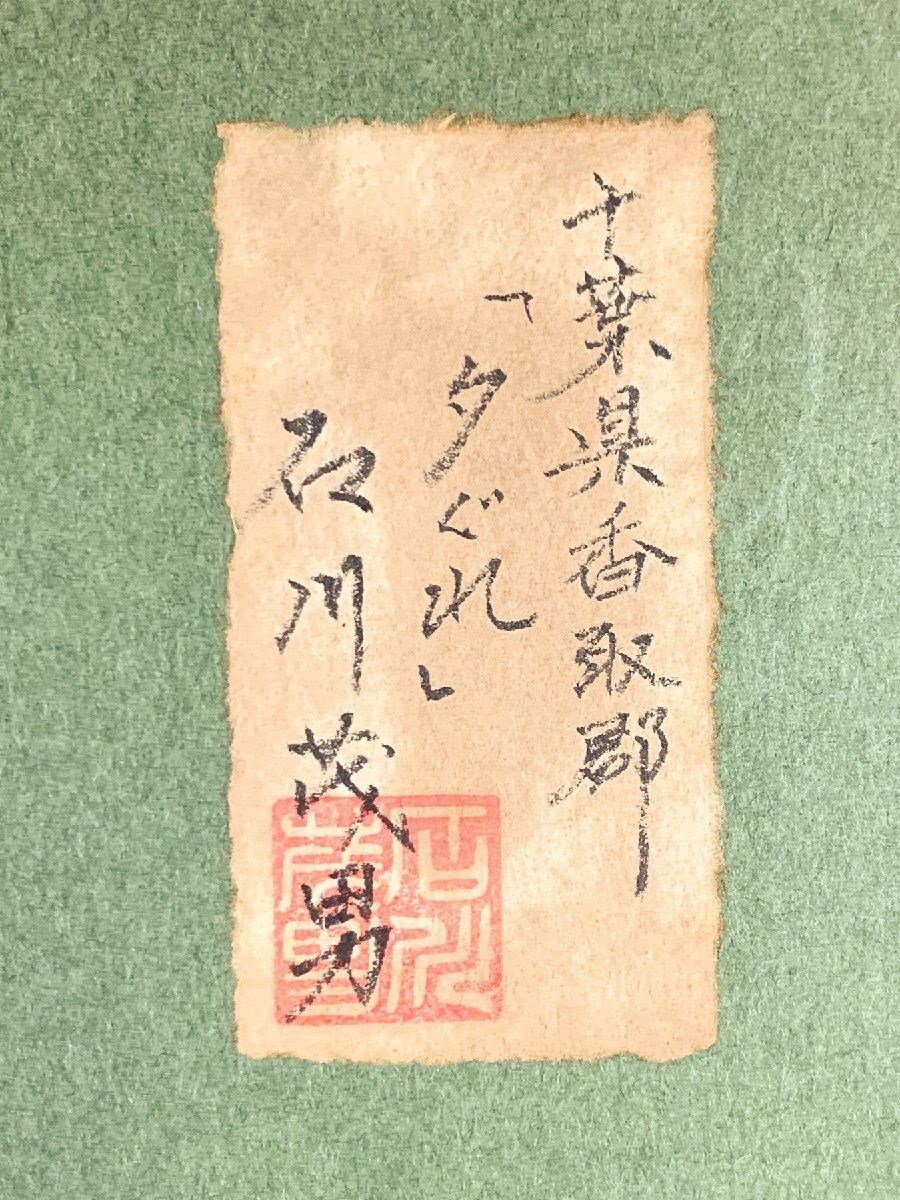 千葉県香取郡
「夕ぐれ」
石川茂男
石川茂男